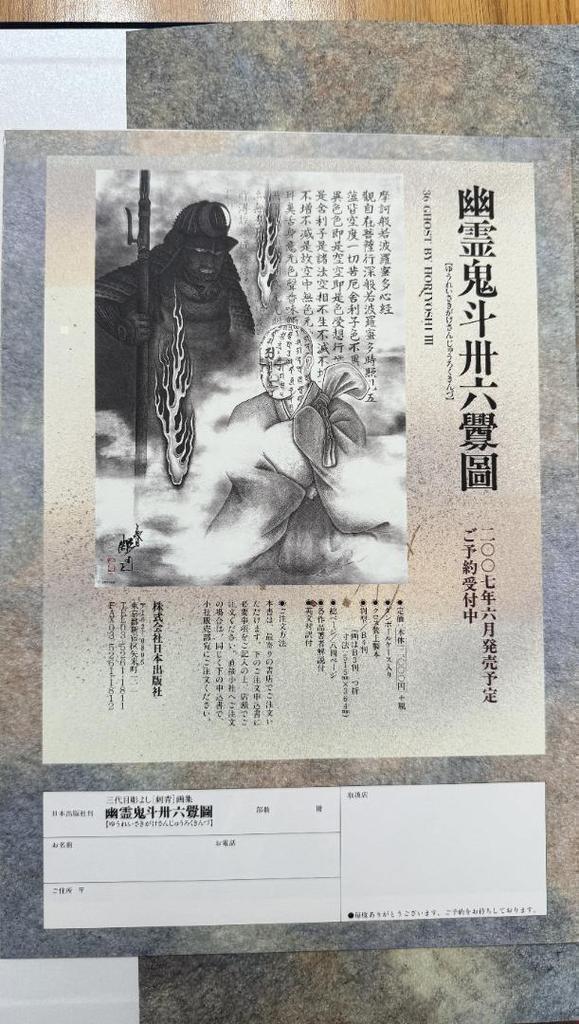 幽霊鬼斗卅六覺圖
【ゆうれいさきがけさんじゅうろくさんづ】
36 GHOST BY HORIYOSHI III
摩訶般若波羅蜜多心経
観自在菩薩行深般若波羅蜜多時照見五
蘊皆空度一切苦厄舎利子色不異
異色色即是空空即是色受想行
是舎利子是諸法空相不生不滅不
不増不減是故空中無色無
耳鼻舌身意无色聲香味
二〇〇七年六月発売予定
ご予約受付中
●ダンボールケース入り
●クロス装上製本
●判型/B4判
●総ページ/八四ページ
●各作品著者解説付
●英文対訳付
●ご注文方法
本書は、最寄りの書店でご注文い
ただけます。下のご注文申込書に
必要事項をご記入の上、店頭でご
注文ください。直接小社へご注文
の場合は、同じく下の申込書で、
小社販売部宛にご注文ください。
株式会社日本出版社
TEL 03-5261-1811
FAX 03-5261-1812
三代目彫よし[刺青]画集
日本出版社刊
幽霊鬼斗卅六覺圖
【ゆうれいさきがけさんじゅうろくさんづ】
部数 冊
お名前 お電話
ご住所 〒
取扱店
●毎度ありがとうございます。ご予約をお待ちしております。